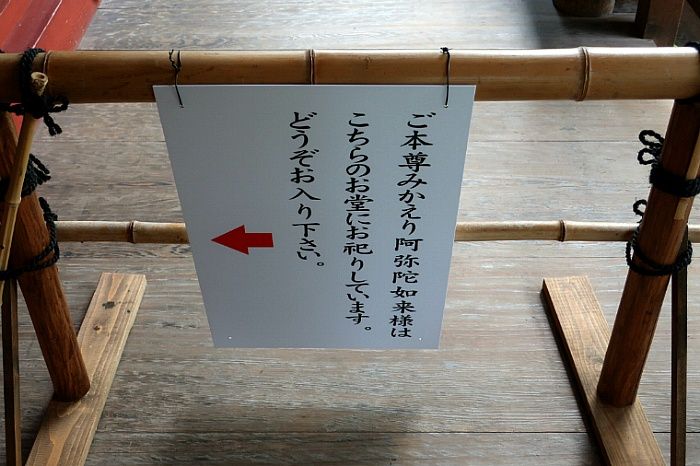 ご本尊みかえり阿弥陀如来様は
こちらのお堂にお祀りしています。
どうぞお入り下さい。